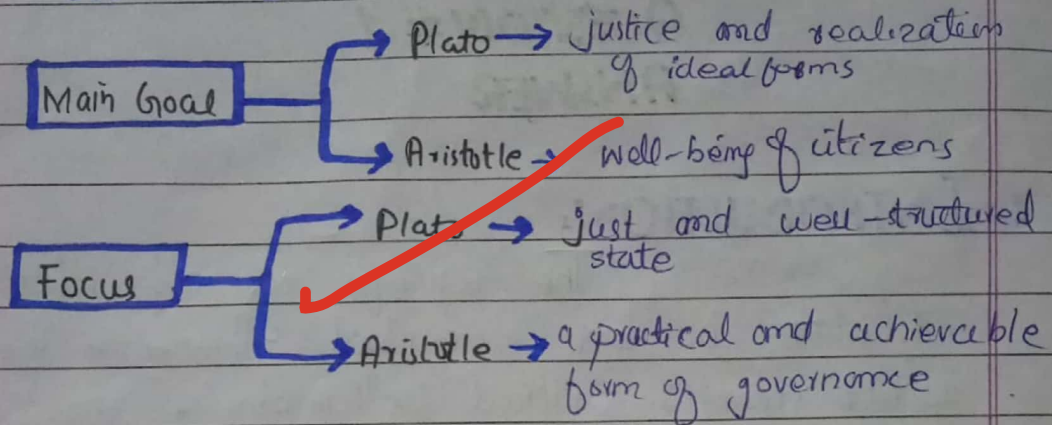 Plato → justice and realization
of ideal forms
Main Goal
Aristotle → well-being of citizens
Plato → just and well-structured
state
Focus
Aristotle → a practical and achievable
form of governance